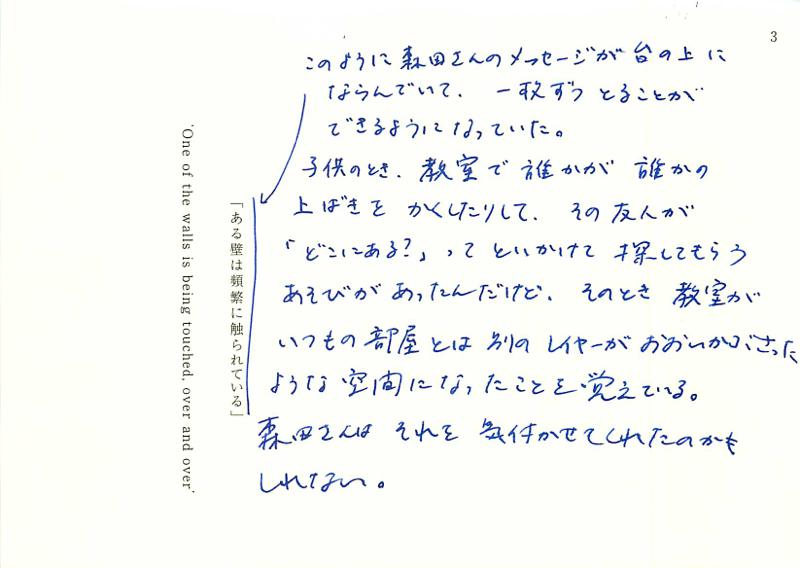 3
このように森田さんのメッセージが台の上に
ならんでいて、一枚ずつとることが
できるようになっていた。
子供のとき、教室で誰かが誰かの
上ばきをかくしたりして、その友人が
「どこにある?」ってといかけて探してもらう
あそびがあったんだけど、そのとき教室が
いつもの部屋とは別のレイヤーがおおいかぶさった
ような空間になったことを覚えている。
森田さんはそれを気付かせてくれたのかも
しれない。
「ある壁は頻繁に触られている」
'One of the walls is being touched, over and over'